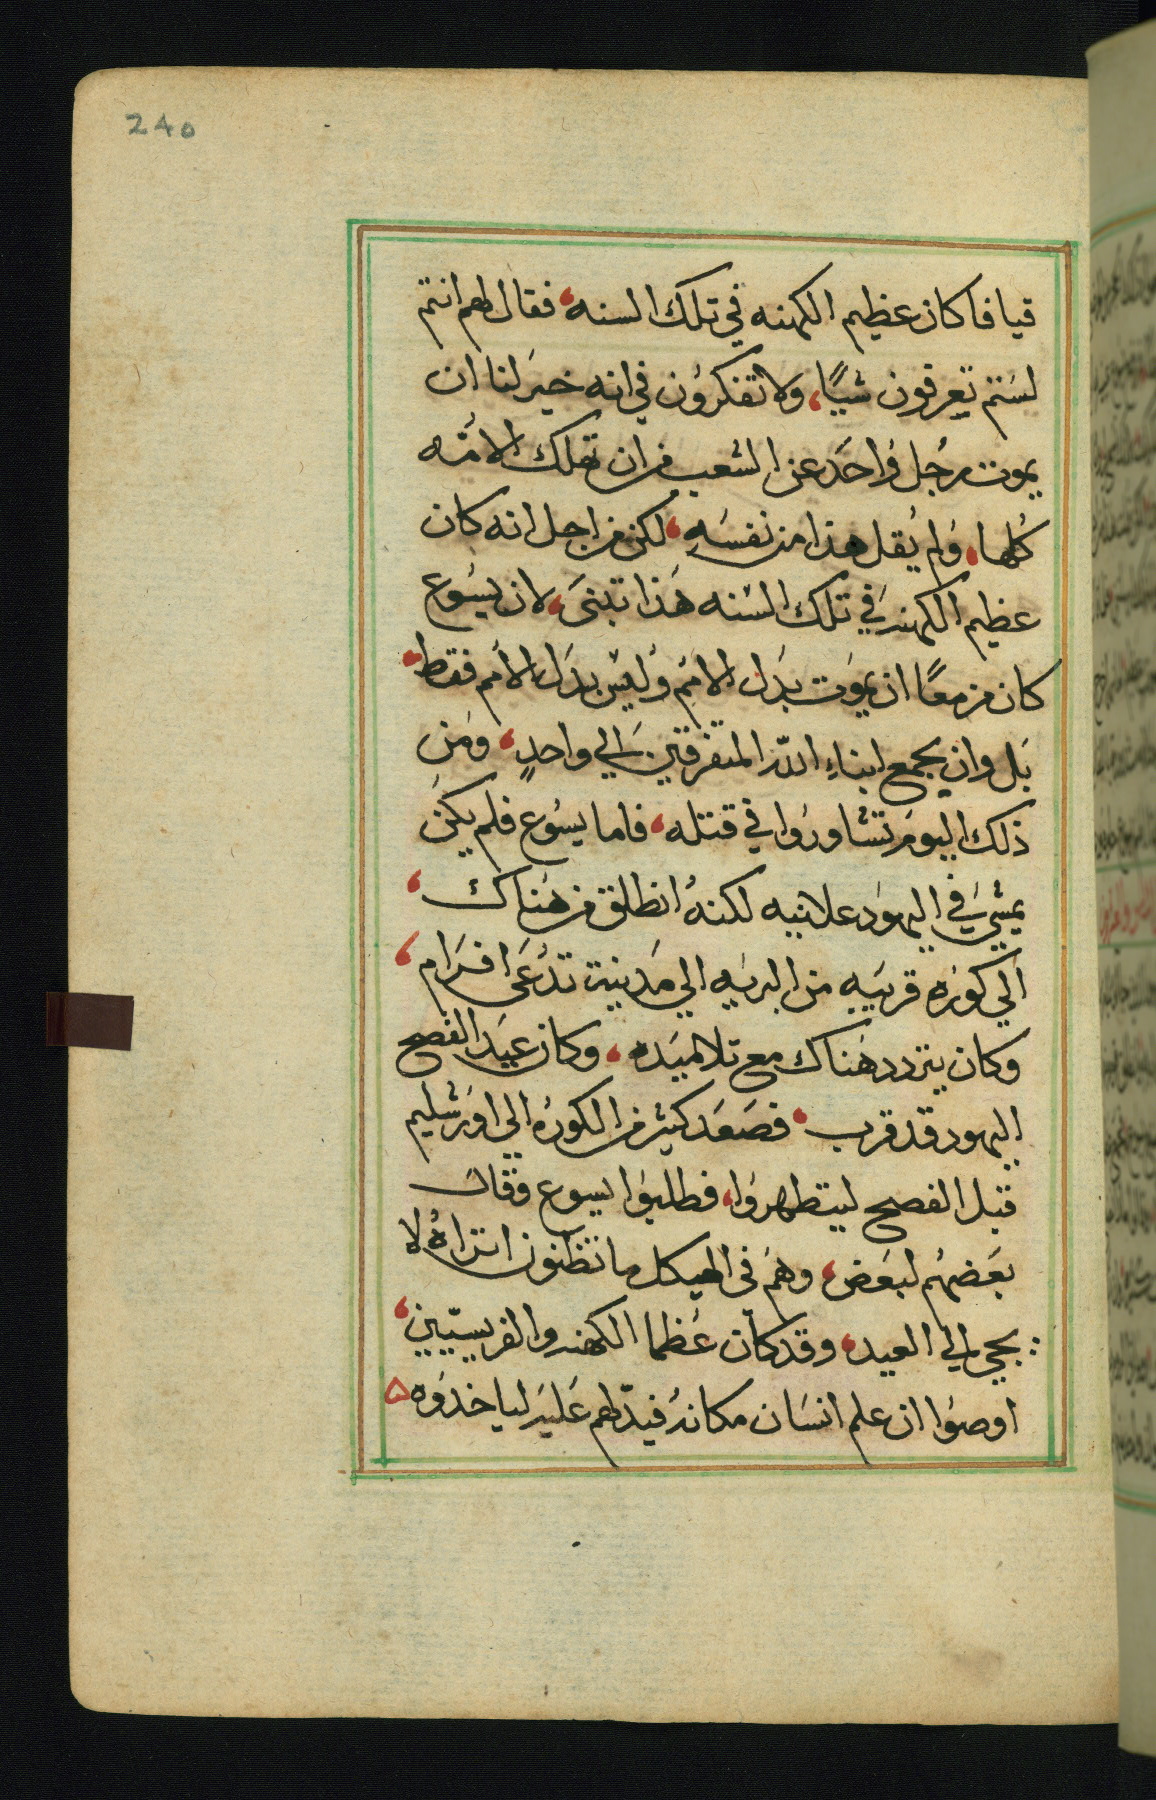 240
قيافا كان عظيم الكهنه في تلك السنه، فقال لهم انتم
لسَتم تعرفون شيًا، ولا تفكرُون في انه خيرَ لنا ان
يموت رجُل وُاحدَ عن الشعب من ان تهلك الامُه
كُلها، وُلم يُقل هذا من نفسَهِ، لكن من اجل انه كان
عظيم الكهنه في تلك السَنه هَذا تبنىَ، لان يسُوع
كان مزمعًا ان يموَت بدَل الامَم وُليسَ بدَل الاُمم فقط،
بَل وان يجمع ابناءِ اللّه المتفرقين اَلي واحدٍ، ومَن
ذلك اليومَ تشاورُوا في قتله، فاما يسُوع فلم يكنُ
يمشيَ في اليهوَد علانيه لكنهُ انطلق من هَناك،
الَي كورَه قريبَه من البريَه الي مَدينة تدُعَى افرَام،
وكان يتردد هَناك مع تلاميَده، وكان عيَد الفصح
اليهود قد قرب، فصَعَد كثير من الكورَه الي اورَشليم
قبل الفصح ليتطهروُا، فطلبوُا يسوع وقال
بعَضهُم لبعَض، وهَم فى الهيكل ما تظنون اتراهُ لا
: يجي الي العيد، وقد كان عُظما الكهنه والفريسيّين،
اوصوُا ان علم انسَان مكانهُ فيدّلهم عَليهَ لياخدَوه ۵